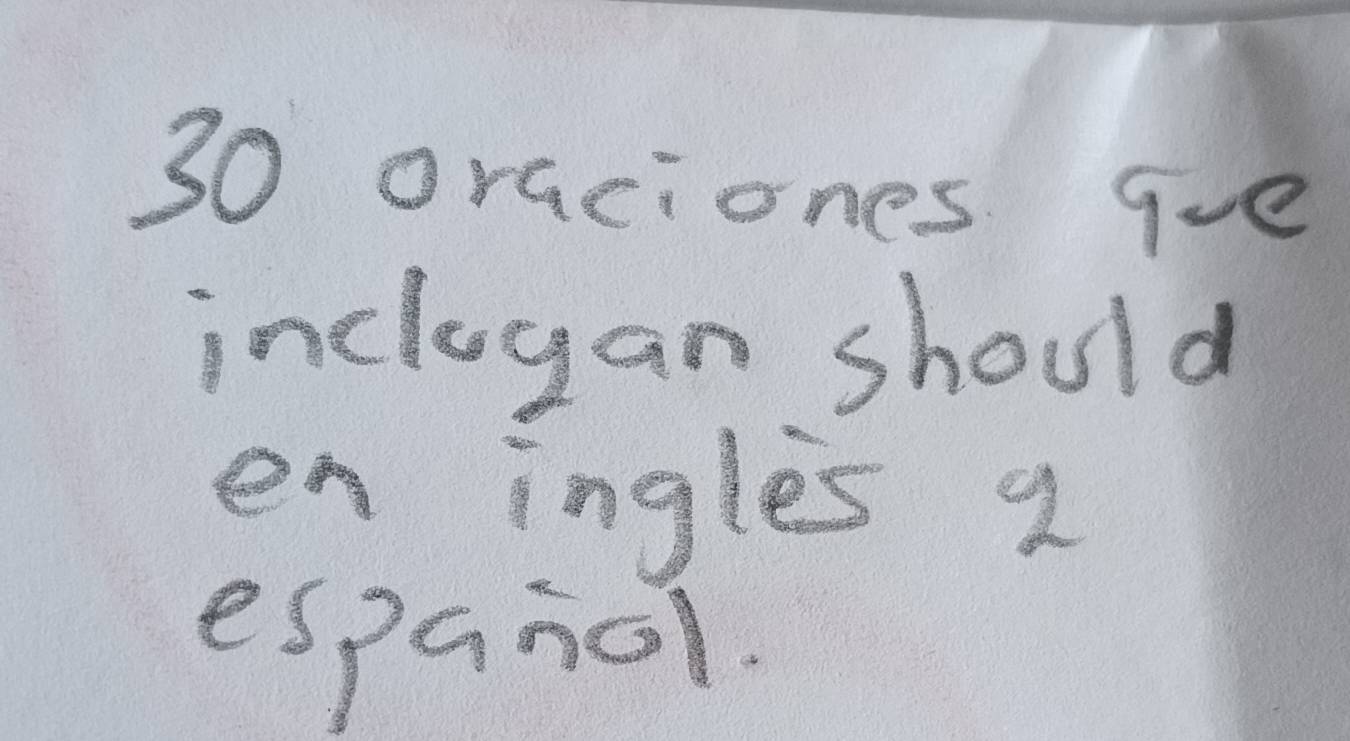 30 oraciones que
incluyan should
en inglès y
español.